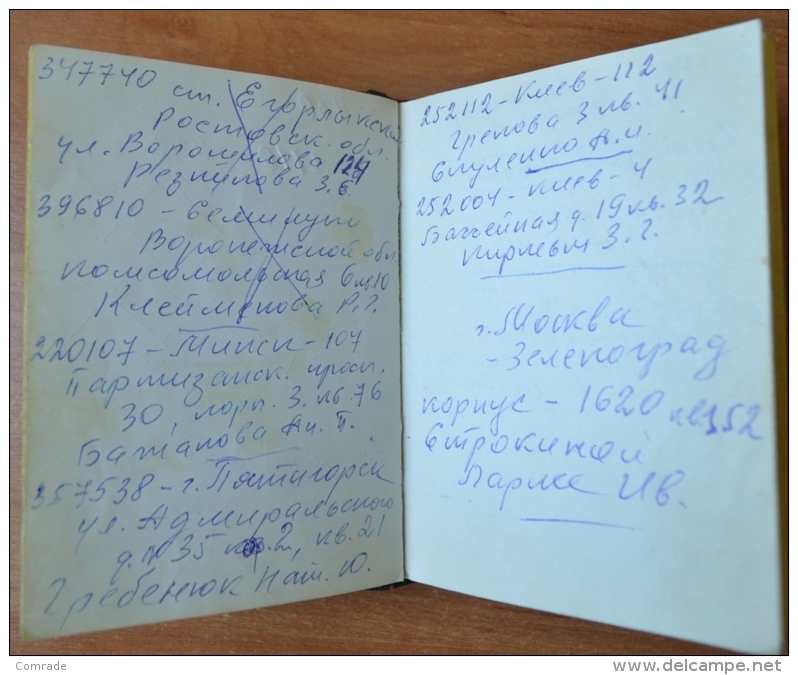 347740 ст. Егорлыкская
Ростовск. обл.
ул. Ворошилова 124
Резникова З.Е.
396810 - Семилуки
Воронежской обл.
Комсомольская 10
Клейменова Р.Г.
220107 - Минск - 107
Партизанск. просп.
30, корп. 3, кв. 76
Бажанова Ан. П.
357538 - г. Пятигорск
ул. Адмиральского
д. № 35 кор. 2, кв. 21
Гребенюк Нат. Ю.
252112 - Киев - 112
Грекова 3 кв. 41
А.И.
252004 - Киев - 4
Бассейная д. 19 кв. 32
З.Г.
г. Москва
- Зеленоград
корпус - 1620 кв 352
Строкиной
Ларисе Ив.
Comrade
delcampe.net